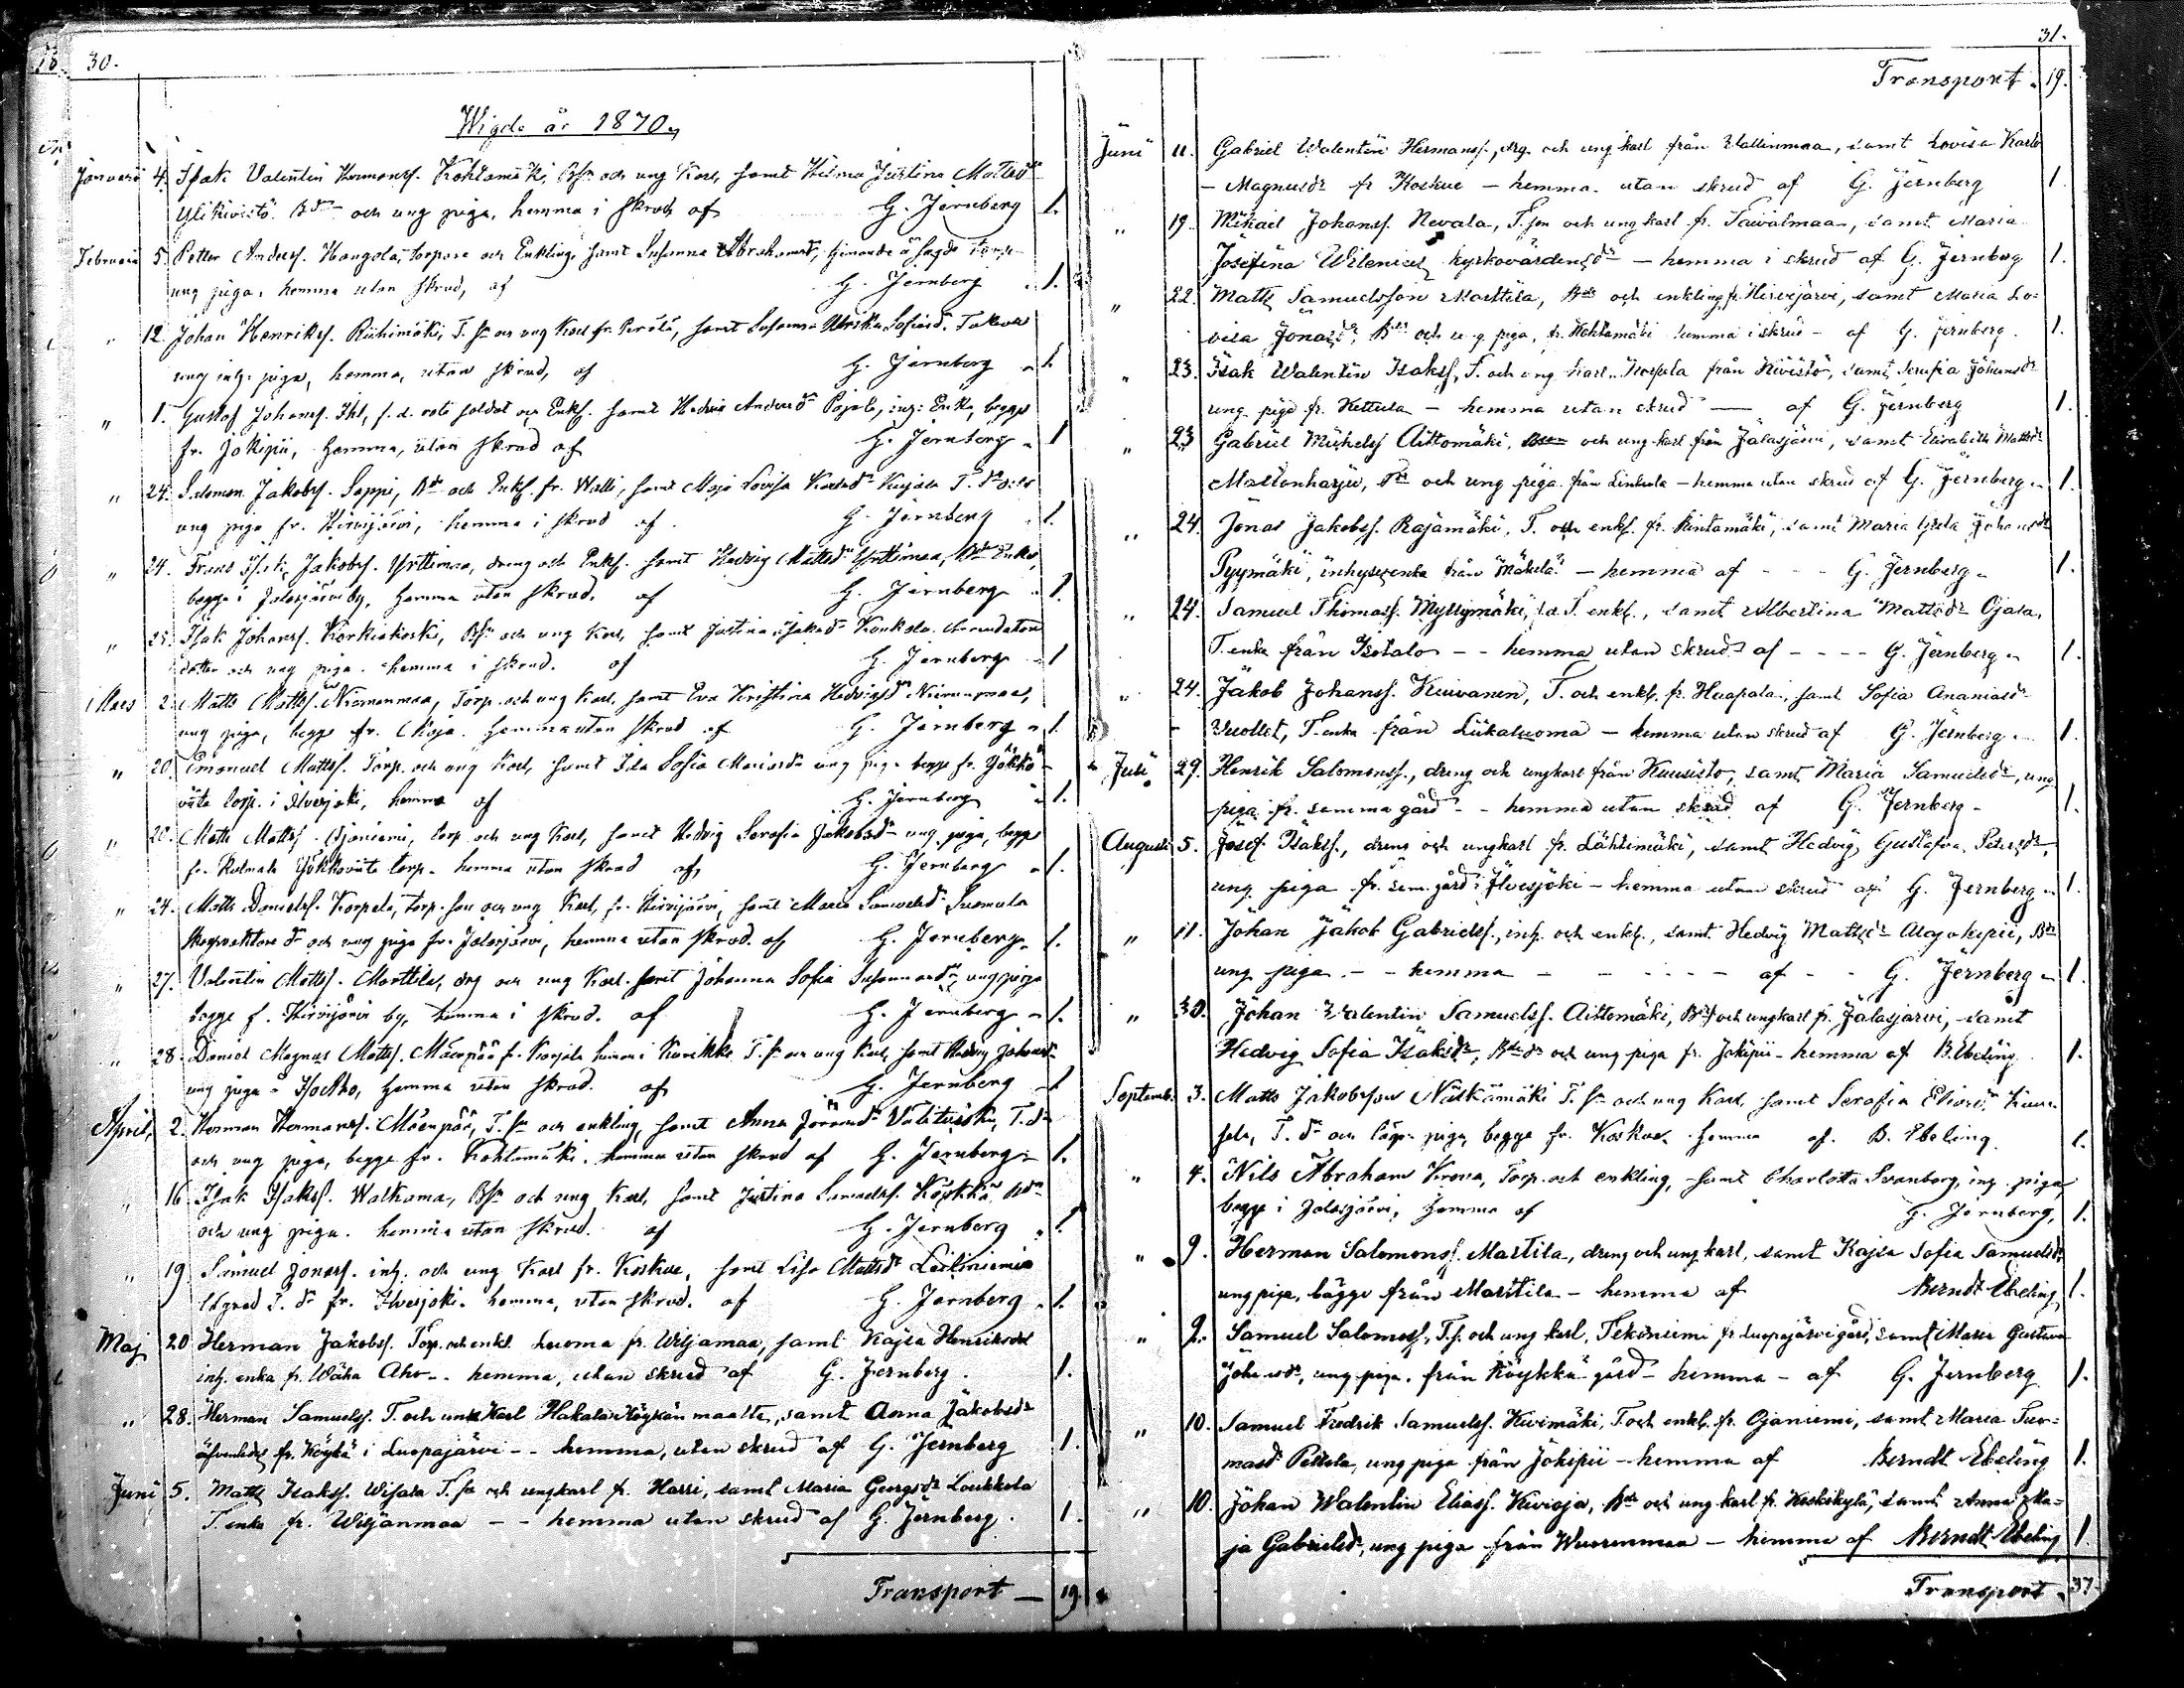 30.
Wigde år 1870.
Januari 4. Isak Valentin Hermanss. Kohtamäki, Bs. och ung Karl, samt Hilma Justina Mattsdr
Ylikivistö. Bdr och ung piga, hemma i skrud af G. Jernberg 1.
Februari 5. Petter Anderss. Hangola, torpare och Enkling, samt Susanna Abrahamsdr,
ung piga. hemma utan skrud, af G. Jernberg 1.
" 12. Johan Henrikss. Riihimäki, T. sn och ung Karl fr. Perälä, samt Susanna Ulrika Sofiasdr.
ung inh. piga, hemma, utan skrud, af G. Jernberg 1.
" 1. Gustaf Johanss. Ihl, f.d. rote soldat och Enkl. samt Hedvig Andersdr Pajula, inh: Enka, begge
fr. Jokipii, hemma, utan skrud af G. Jernberg 1
" 24. Salomon Jakobss. Seppi, Bde och Enkl. fr. Walli, samt Maja Lovisa Karlsdr T.
ung piga fr. Hirvijärvi, hemma i skrud af G. Jernberg 1.
" 24. Frans Isak Jakobss. Yrttimaa, dreng och Enkl. samt Hedvig Mattsdr Yrttimaa, Bde Enka,
begge i Jalasjärvi by, hemma utan skrud. af G. Jernberg 1.
" 25. Isak Johanss. Korkiakoski, Bsn och ung Karl, samt Justina Isaksdr Kankola.
dotter och ung piga. hemma i skrud. af G. Jernberg 1
Mars 2. Matts Mattss. Niemenmaa, Torp. och ung Karl, samt Eva Kristina Hedvigsdr Niemenmaa,
ung piga, begge fr. Koja. hemma utan skrud af G. Jernberg 1.
" 20. Emanuel Mattss. Torp. och ung Karl, samt Ida Sofia Mariasdr ung piga begge fr. Jökkö-
viita torp. i Ilvesjoki, hemma af G. Jernberg 1.
" 20. Matts Mattss. Ojaniemi, torp och ung Karl, samt Hedvig Serafia Jakobsdr ung piga, begge
fr. Jökköviita torp. hemma utan skrud af G. Jernberg 1.
" 24. Matts Danielss. Korpela, torp. son och ung Karl, fr. Hirvijärvi, samt Maria Samuelsdr Luomala
dr och ung piga fr. Jalasjärvi, hemma utan skrud. af G. Jernberg. 1.
" 27. Valentin Mattss. Marttila, drg och ung Karl. samt Johanna Sofia Susannasdr, ung piga
begge f. Hirvijärvi by, hemma i skrud. af G. Jernberg 1.
" 28. Daniel Magnus Mattss. Mäenpää f. Korjala hemma i Kurikka T. sn och ung Karl, samt Hedvig Johansdr
ung piga, hemma utan skrud. af G. Jernberg 1
April, 2. Herman Hermanss. Mäenpää, T. sn och enkling, samt Anna Jonasdr T. dr
och ung piga, begge fr. Kohtamäki. hemma utan skrud af G. Jernberg 1.
" 16. Isak Isakss. Walkama, Bsn och ung Karl, samt Justina Samuelsd. Köykkä, Bdr
och ung piga. hemma utan skrud. af G. Jernberg 1
" 19 Samuel Jonass. inh. och ung Karl fr. Koskue, samt Lisa Mattsdr Leikiniemi
lägrad T. dr fr. Ilvesjoki. hemma, utan skrud. af G. Jernberg 1.
Maj 20 Herman Jakobss. Torp. och enkl. Luoma fr. Wiljamaa, samt Kajsa Henriksdr
inh. enka fr. Wäha Aho-- hemma, utan skrud af G. Jernberg. 1.
" 28. Herman Samuelss. T. och ung Karl Hakala Köykän maalta, samt Anna Jakobsdr
fr. Köykä i Luopajärvi -- hemma, utan skrud af G. Jernberg 1.
Juni 5. Matts Isakss. Wisala T. sn och ungkarl fr. Harri, samt Maria Georgsdr Loukkola
T. enka fr. Wiljanmaa -- hemma utan skrud af G. Jernberg. 1.
Transport — 19.
31.
Transport 19.
Juni 11. Gabriel Walentin Hermanss., drg. och ung karl från Wallinmaa, samt Lovisa Karls
- Magnusdr fr Koskue - hemma. utan skrud af G. Jernberg 1.
" 19. Mikael Johanss. Nevala, T. son och ung karl fr. Taivalmaa, samt Maria
Josefina Wilenius, kyrkovärdensdr - hemma i skrud af G. Jernberg 1.
" 22. Matts Samuelsson Marttila, Bde och enkling fr. Hirvijärvi, samt Maria Lo-
visa Jonasdr, Bdr och ung piga, fr. Kohtamäki hemma i skrud - af G. Jernberg. 1.
" 23. Isak Walentin Isakss, T. och ung karl Korpela från Kivistö, samt Serafia Johansdr
ung piga fr. Kettula - hemma utan skrud — af G. Jernberg 1.
" 23 Gabriel Mickelss Aittomäki, och ung karl från Jalasjärvi, samt Elisabeth Mattsdr
Mattonharju, och ung piga från Linkola - hemma utan skrud af G. Jernberg 1.
" 24. Jonas Jakobss. Rajamäki, T. och enkl. fr. Rintamäki, samt Maria Greta Johansdr
Pyymäki, inhysesenka från Mäkelä - hemma af --- G. Jernberg 1.
" 24. Samuel Thomass. Myllymäki, f.d. T. enkl., samt Albertina Mattsdr Ojala,
T. enka från Isotalo -- hemma utan skrud af ---- G. Jernberg 1.
" 24. Jakob Johanss. Kuivanen, T. och enkl. fr. Haapala, samt Sofia Ananiasdr
Wuollet, T. enka från Liikaluoma - hemma utan skrud af G. Jernberg 1.
Juli 29. Henrik Salomonss., dreng och ungkarl från Kuusisto, samt Maria Samuelsdr, ung
piga fr. samma gård -- hemma utan skrud af G. Jernberg - 1.
Augusti 5. Josef Isakss., dreng och ungkarl fr. Lähtimäki, samt Hedvig Gustafva Petersdr,
ung piga fr. sam. gård i Ilvesjoki - hemma utan skrud af G. Jernberg 1.
" 11. Johan Jakob Gabrielss., inh. och enkl., samt Hedvig Mattsdr Alajokipii, Bdr
ung piga -- hemma - - - - - af - - G. Jernberg 1.
" 30. Johan Walentin Samuelss. Aittomäki, Bs. och ungkarl fr. Jalasjärvi, samt
Hedvig Sofia Isaksdr, Bde dr och ung piga fr. Jokipii - hemma af B. Ebeling. 1.
Septemb. 3. Matts Jakobsson Näkkämäki T. sn och ung Karl, samt Serafia Eliasdr
T. dr och lägr. piga, begge fr. Koskue hemma af. B. Ebeling. 1.
" 4. Nils Abraham Krona, Torp. och enkling, samt Charlotta Svanborg, inh. piga,
begge i Jalasjärvi, hemma af G. Jernberg, 1.
" 9. Herman Salomonss. Martila, dreng och ung karl, samt Kajsa Sofia Samuelsdr,
ung piga, bägge från Marttila - hemma af Berndt Ebeling, 1.
" 9. Samuel Salomonss, T.s. och ung karl, Tekoniemi fr Luopajärvi gård, samt Maria Gustava
Johansdr, ung piga. från Köykkä gård - hemma - af G. Jernberg 1.
" 10. Samuel Fredrik Samuelss. Kivimäki, T och enkl. fr. Ojaniemi, samt Maria Tuo-
masdr Pettola, ung piga från Jokipii - hemma af Berndt Ebeling 1.
" 10. Johan Walentin Eliass. Kivioja, Bde och ung karl fr. Keskikylä, samt Anna Ma-
ja Gabrielsdr, ung piga från Wuorenmaa - hemma af Berndt Ebeling 1.
Transport 37.